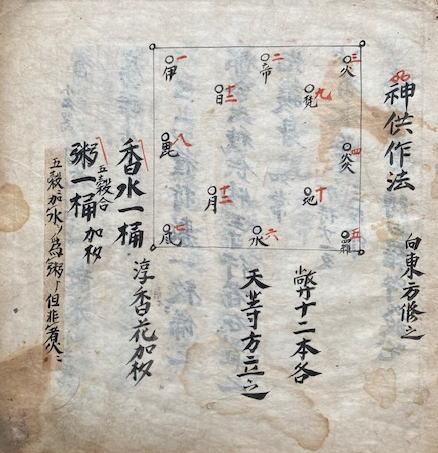 神供作法
向東方修之
三 火
四 炎
五 羅
二 帝
九 梵
十 地
六 水
日
十二 月
一 伊
八 毘
風
幣十二本各
天等方立之
香水一桶 淳香花加杓
五穀合
粥一桶 加杓
五穀加水ノ為粥但非煮